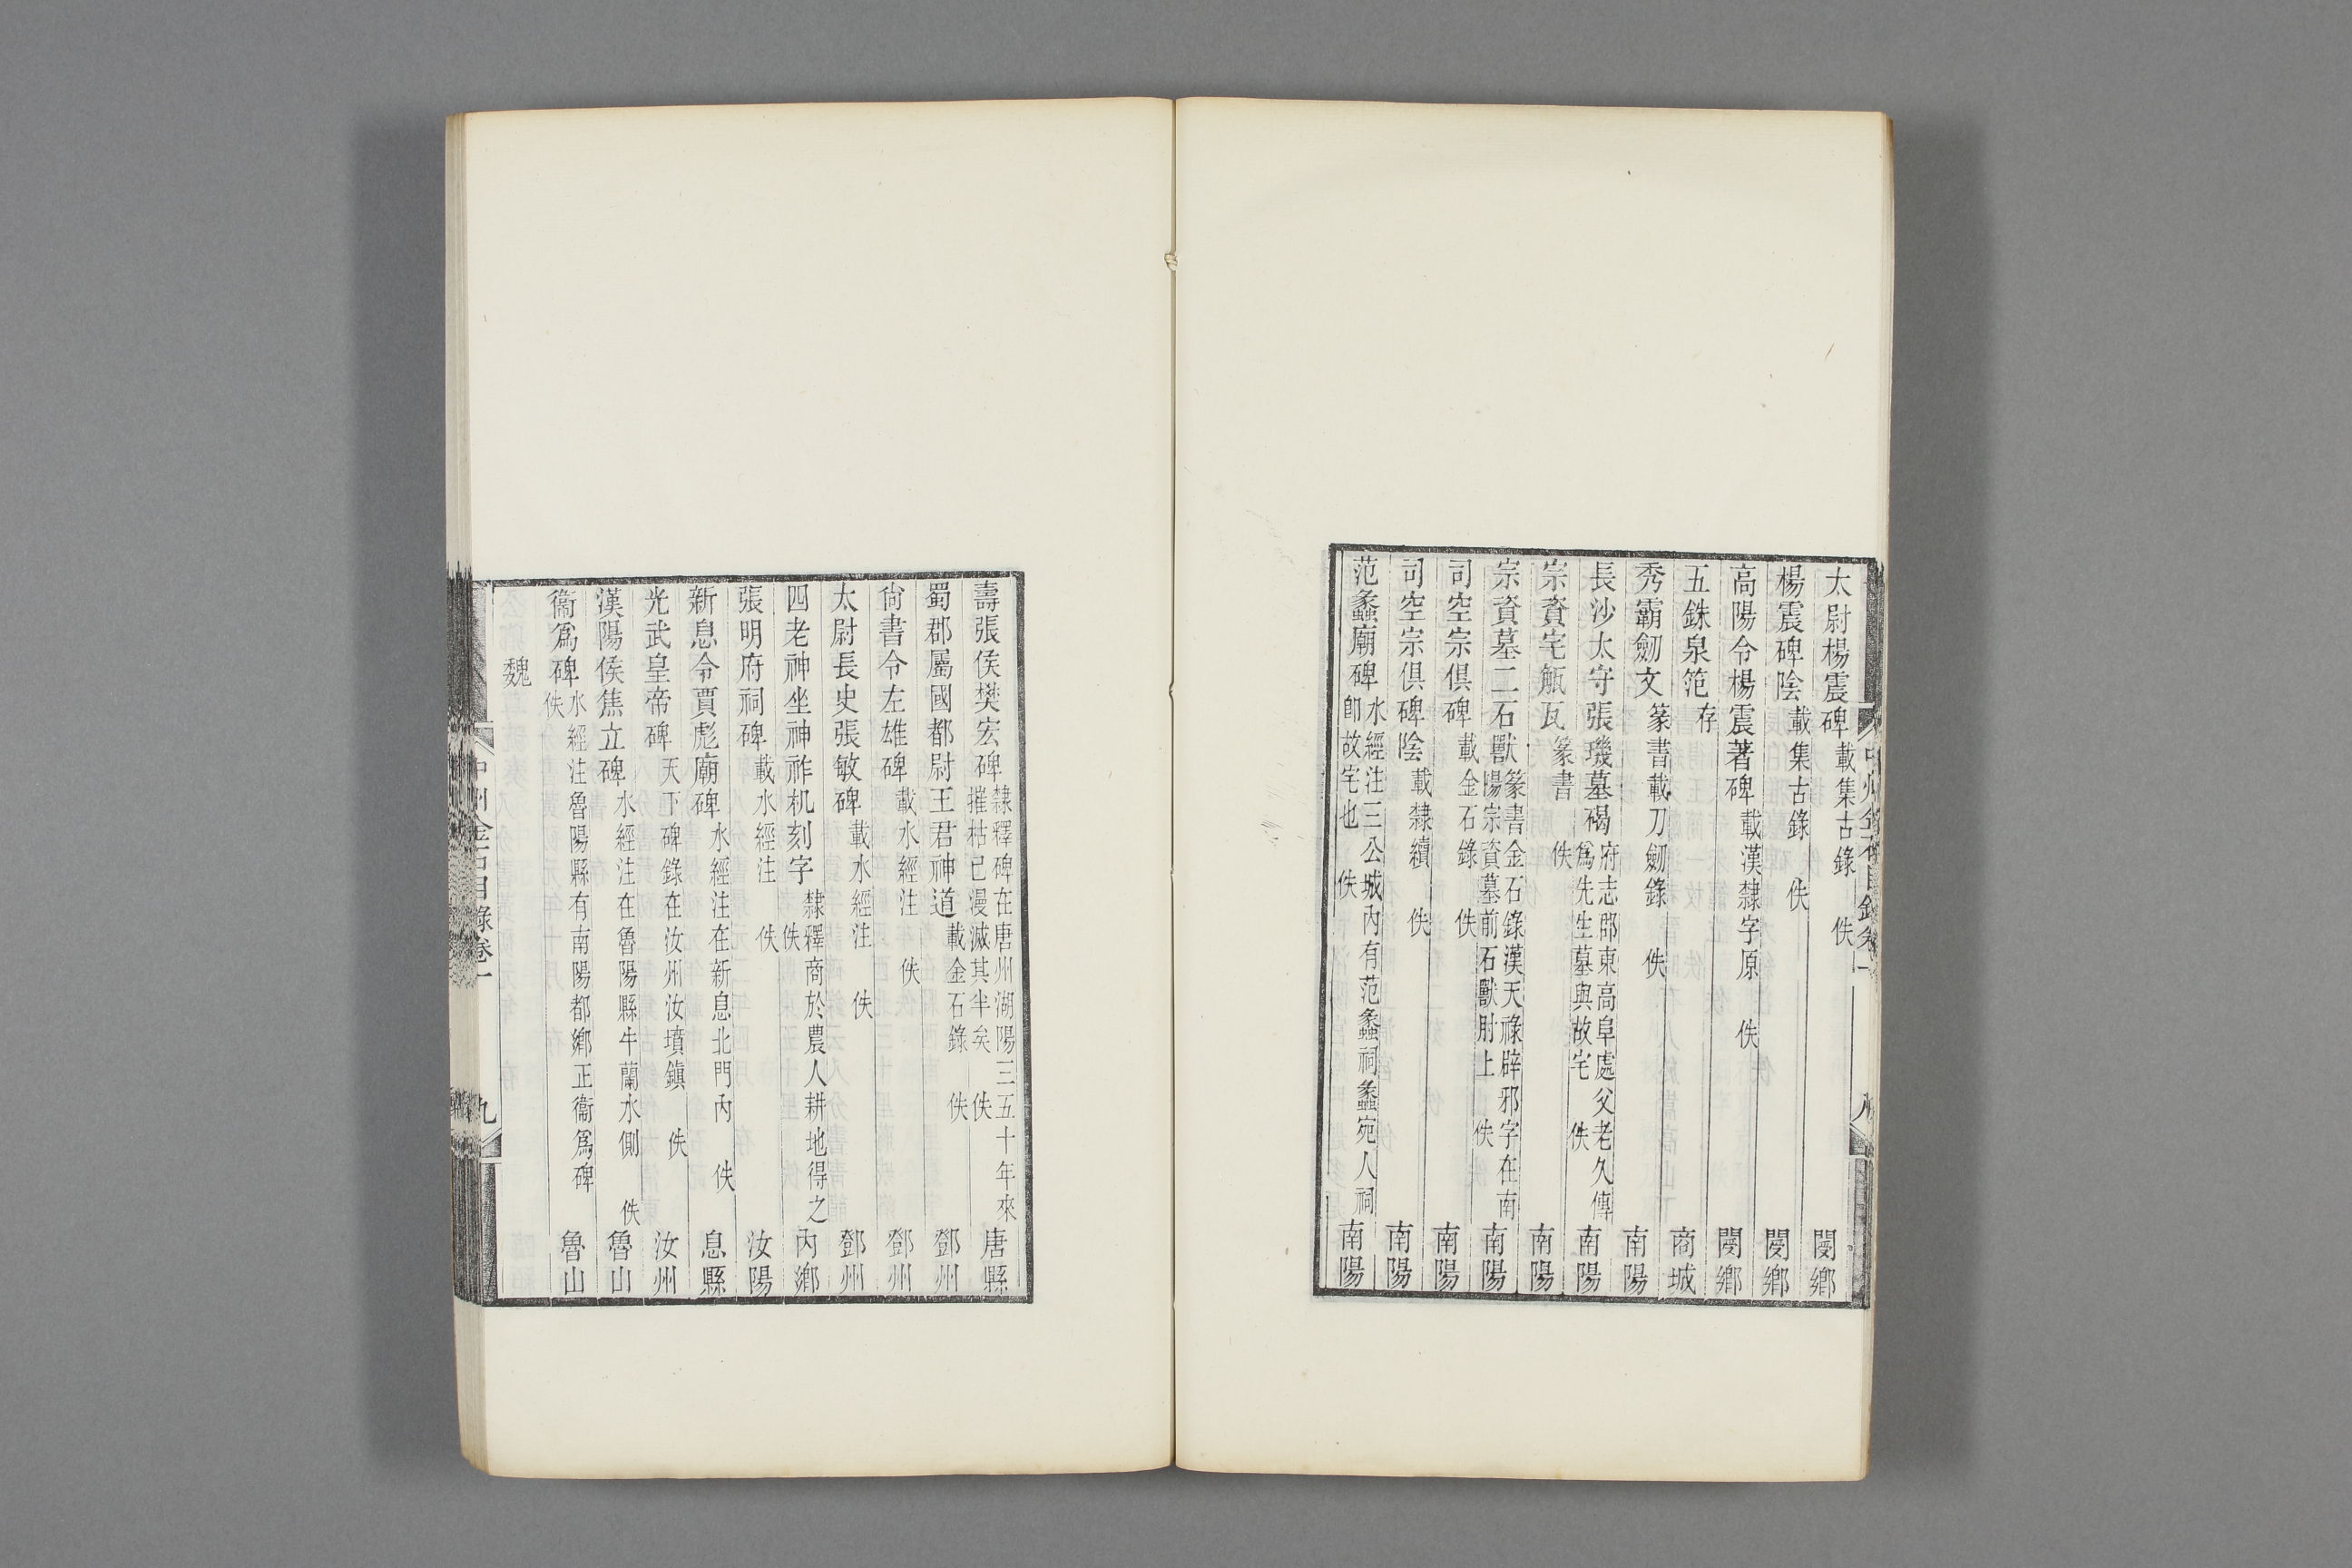 太尉楊震碑 載集古錄 佚 閿鄉
楊震碑陰 載集古錄 佚 閿鄉
高陽令楊震著碑 載漢隸字原 佚 閿鄉
五銖泉笵 存 商城
秀霸劒文 篆書載刀劒錄 佚 南陽
長沙太守張璣墓碣 府志郡東高阜處父老久傳
爲先生墓與故宅 佚 南陽
宗資宅瓳瓦 篆書 佚 南陽
宗資墓二石獸 篆書金石錄漢天祿辟邪字在南
陽宗資墓前石獸肘上 佚 南陽
司空宗俱碑 載金石錄 佚 南陽
司空宗俱碑陰 載隸續 佚 南陽
范蠡廟碑 水經注三公城內有范蠡祠蠡宛人祠
卽故宅也 佚 南陽
中州金石目錄卷一 八
壽張侯樊宏碑 隸釋碑在唐州湖陽三五十年來
摧枯已漫滅其半矣 佚 唐縣
蜀郡屬國都尉王君神道 載金石錄 佚 鄧州
尙書令左雄碑 載水經注 佚 鄧州
太尉長史張敏碑 載水經注 佚 鄧州
四老神坐神祚机刻字 隸釋商於農人耕地得之
佚 內鄉
張明府祠碑 載水經注 佚 汝陽
新息令賈彪廟碑 水經注在新息北門內 佚 息縣
光武皇帝碑 天下碑錄在汝州汝墳鎭 佚 汝州
漢陽侯焦立碑 水經注在魯陽縣牛蘭水側 佚 魯山
衞爲碑 水經注魯陽縣有南陽都鄉正衞爲碑
佚 魯山
魏
中州金石目錄卷一 九